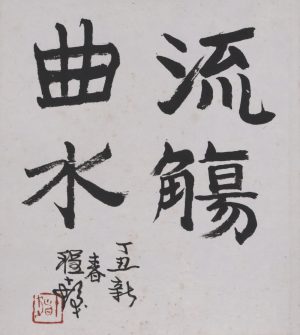 流觴
曲水
丁丑新
春
程十髮